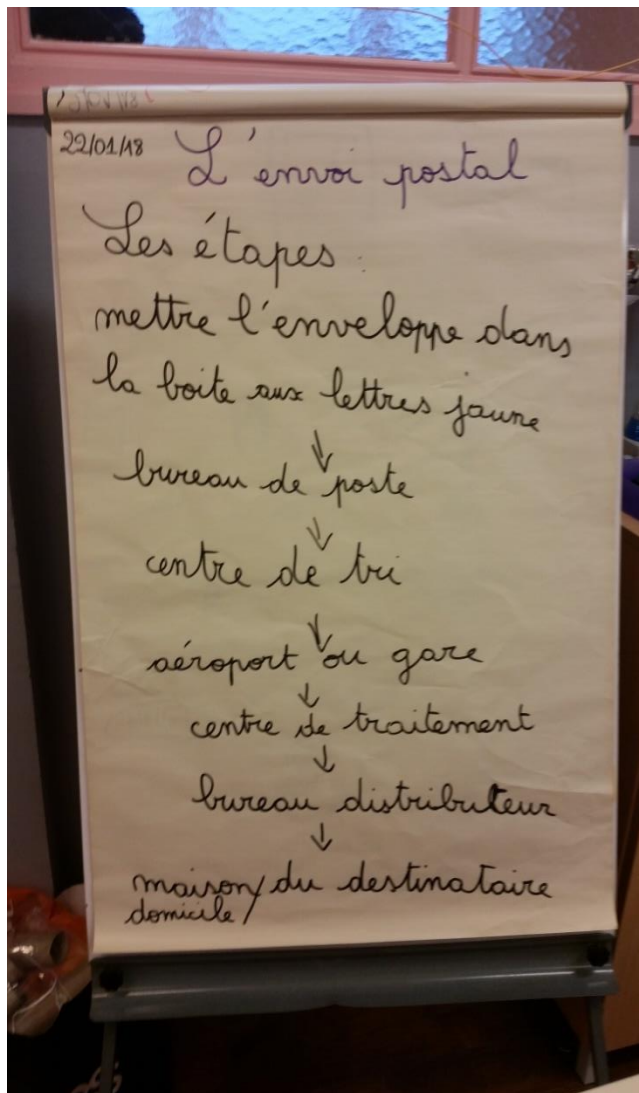 22/01/18
L'envoi postal
Les étapes :
mettre l'enveloppe dans
la boite aux lettres jaune
↓
bureau de poste
↓
centre de tri
↓
aéroport ou gare
↓
centre de traitement
↓
bureau distributeur
↓
maison/ du destinataire
domicile/